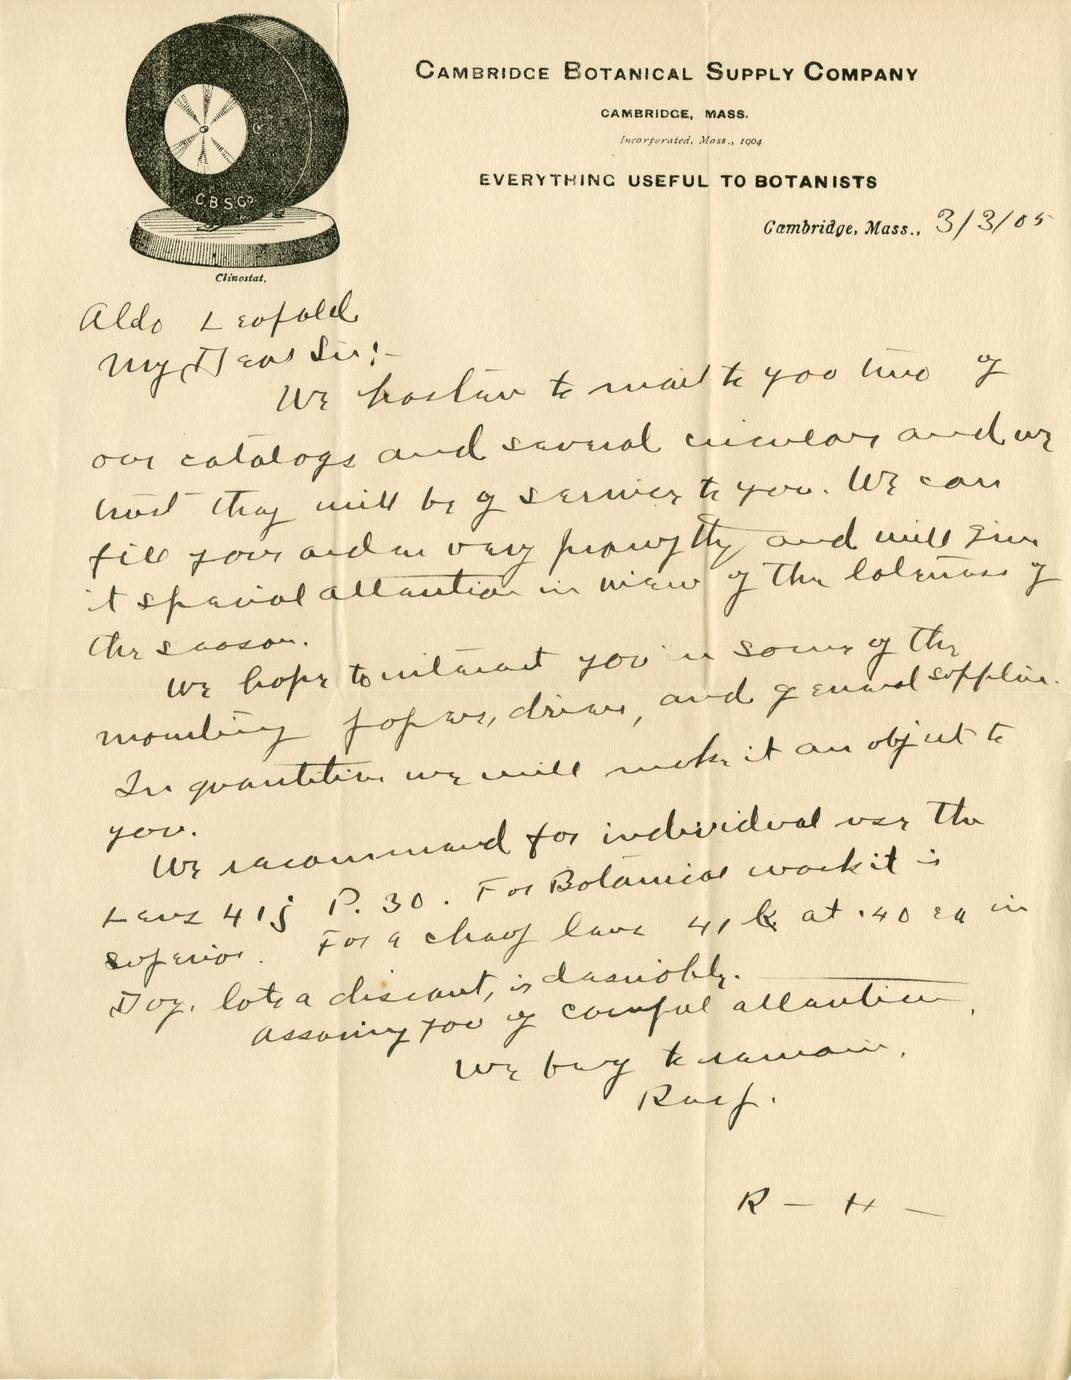 C.B.S.Co
Clinostat.
CAMBRIDGE BOTANICAL SUPPLY COMPANY
CAMBRIDGE, MASS.
Incorporated, Mass., 1904
EVERYTHING USEFUL TO BOTANISTS
Cambridge, Mass., 3/3/05
Aldo Leopold
My Dear Sir:-
We hasten to mail to you two of
our catalogs and several circulars and we
trust they will be of service to you. We can
fill your order very promptly and will give
it special attention in view of the lateness of
the season.
We hope to interest you in some of the
mounting papers, driers, and general supplies.
In quantities we will make it an object to
you.
We recommend for individual use the
Lens 41j P. 30. For Botanical work it is
superior. For a cheap lens 41k at .40 ea in
Doz. lots a discount, is desirable.
Assuring you of careful attention,
We beg to remain,
Resp.
R - H -